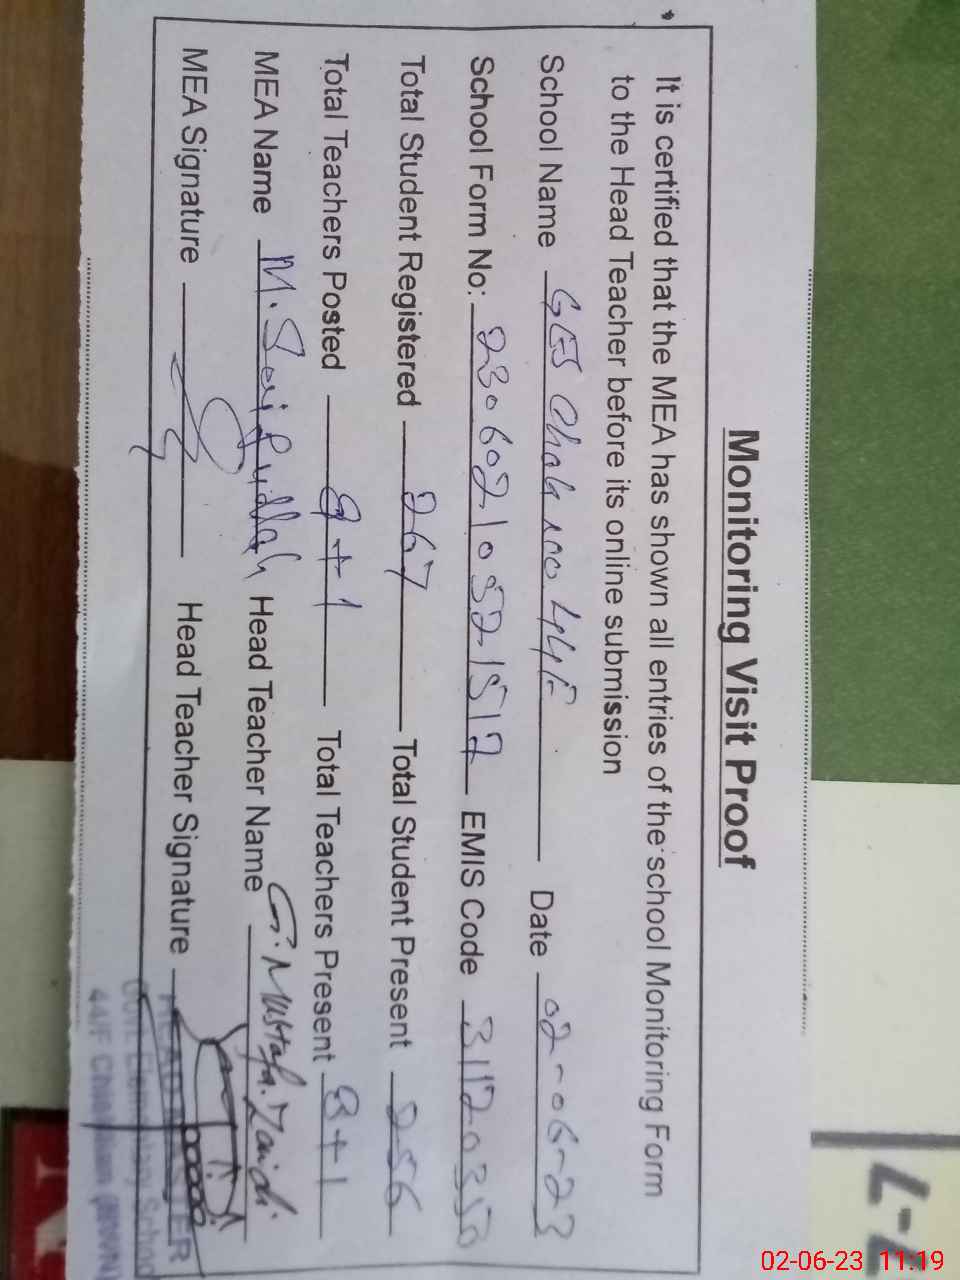 Monitoring Visit Proof
It is certified that the MEA has shown all entries of the school Monitoring Form
to the Head Teacher before its online submission
School Name GES Chak 100 44F Date 02-06-23
School Form No: 23060210521512 EMIS Code 31120350
Total Student Registered 267 Total Student Present 256
Total Teachers Posted 8+1 Total Teachers Present 8+1
MEA Name M. Saifullah Head Teacher Name G. Mustafa Zaidi
MEA Signature Head Teacher Signature
HEADMASTER
Govt. Elementary School
44/F Chishtian (BWN)
L-
02-06-23 11:19